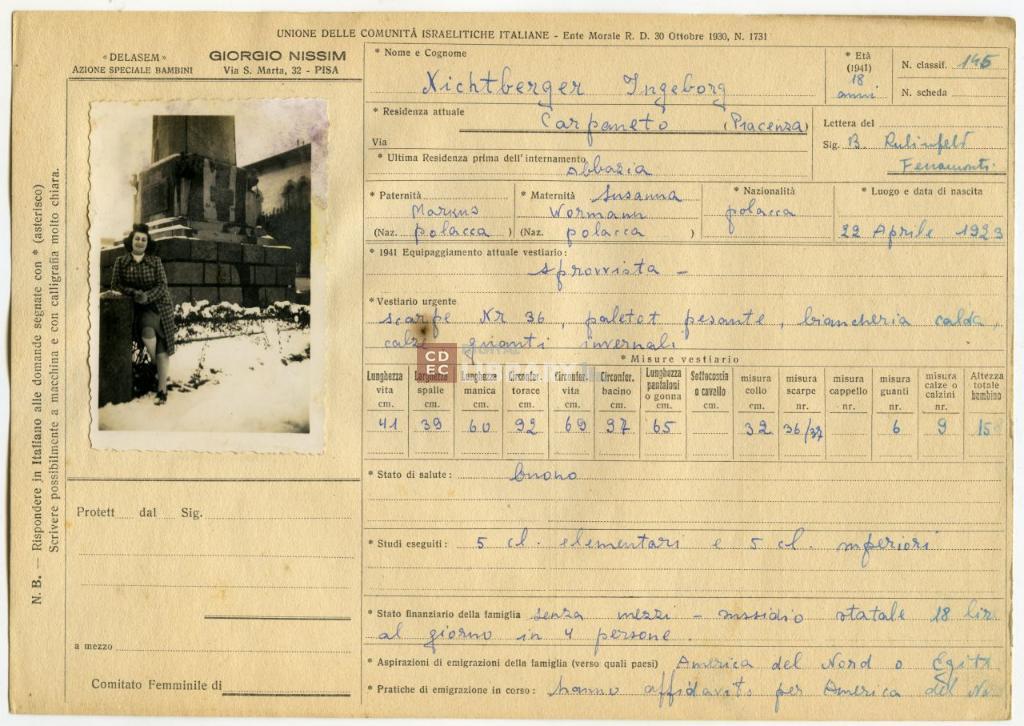 UNIONE DELLE COMUNITÀ ISRAELITICHE ITALIANE - Ente Morale R. D. 30 Ottobre 1930, N. 1731
«DELASEM»
AZIONE SPECIALE BAMBINI
GIORGIO NISSIM
Via S. Marta, 32 - PISA
N. B. — Rispondere in Italiano alle domande segnate con * (asterisco)
Scrivere possibilmente a macchina e con calligrafia molto chiara.
* Nome e Cognome
Nichtberger Ingeborg
* Età
(1941)
18
anni
N. classif. 145
N. scheda
* Residenza attuale
Carpaneto (Piacenza)
Via
* Ultima Residenza prima dell'internamento
Abbazia
Lettera del
Sig. B. Rubinfeld
Ferramonti
* Paternità
Markus
(Naz. polacca )
* Maternità Susanna
Wormann
(Naz. polacca )
* Nazionalità
polacca
* Luogo e data di nascita
22 Aprile 1923
* 1941 Equipaggiamento attuale vestiario:
sprovvista -
* Vestiario urgente
scarpe Nr 36, paletot pesante, biancheria calda,
guanti invernali
CD
EC DIGITAL
* Misure vestiario
Lunghezza vita cm. 41
Larghezza spalle cm. 39
Lunghezza manica cm. 60
Circonfer. torace cm. 92
Circonfer. vita cm. 69
Circonfer. bacino cm. 97
Lunghezza pantaloni o gonna cm. 65
Sottocoscia o cavallo cm.
misura collo cm. 32
misura scarpe nr. 36/37
misura cappello nr.
misura guanti nr. 6
misura calze o calzini nr. 9
Altezza totale bambino 15
* Stato di salute: buono
* Studi eseguiti: 5 cl. elementari e 5 cl. superiori
* Stato finanziario della famiglia senza mezzi - sussidio statale 18 lir
al giorno in 4 persone.
* Aspirazioni di emigrazioni della famiglia (verso quali paesi) America del Nord o Egitt
* Pratiche di emigrazione in corso: hanno affidavits per America del No
Protett dal Sig.
a mezzo
Comitato Femminile di